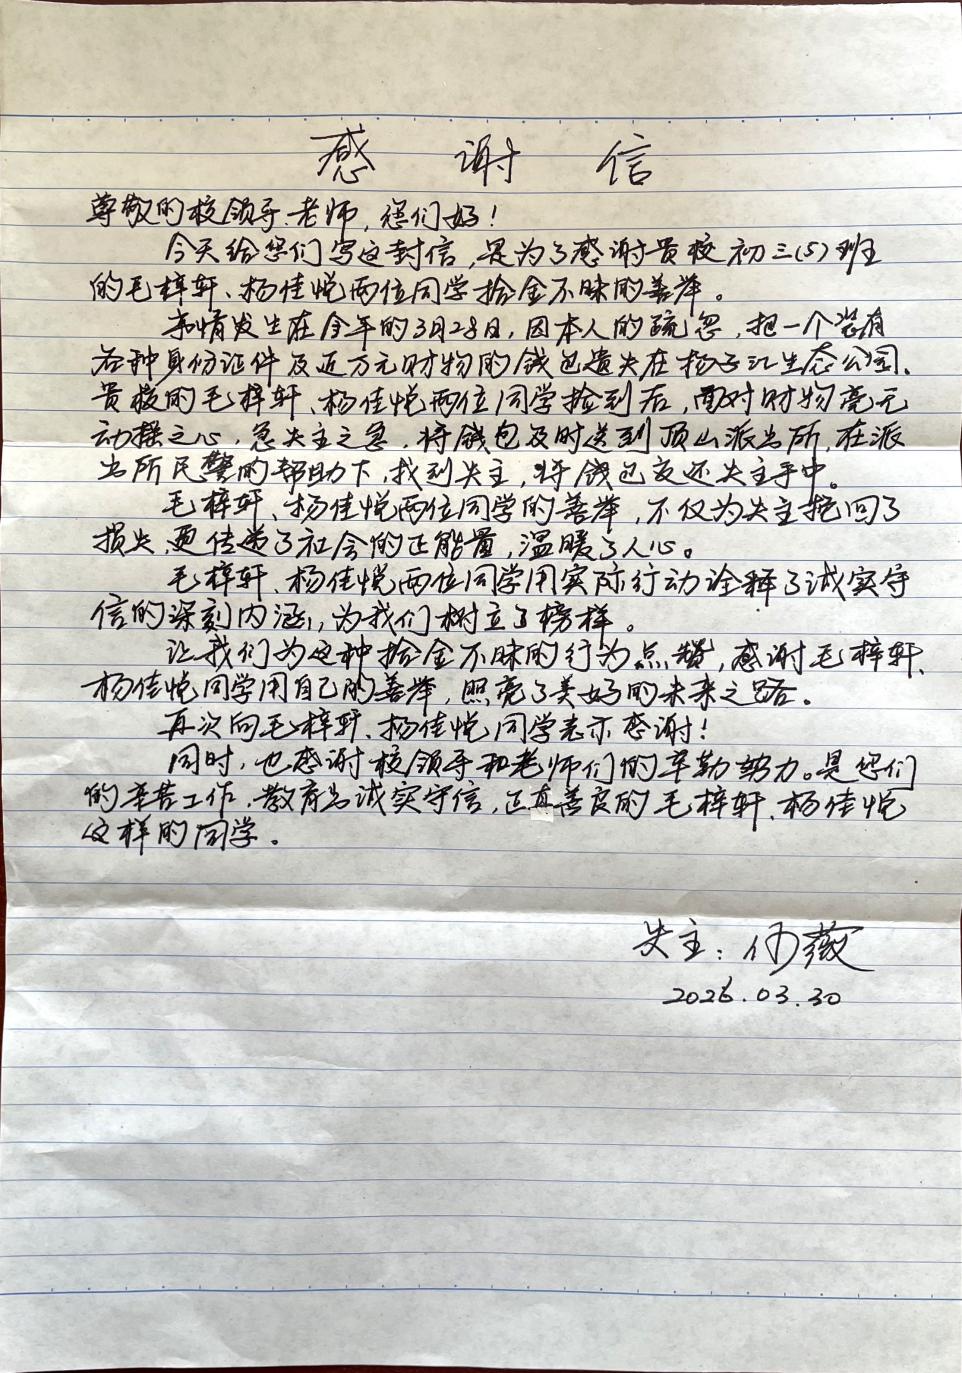 感谢信
尊敬的校领导、老师，您们好！
今天给您们写这封信，是为了感谢贵校初三(5)班
的毛梓轩、杨佳悦两位同学拾金不昧的善举。
事情发生在今年的3月28日，因本人的疏忽，把一个装有
各种身份证件及近万元财物的钱包遗失在扬子江生态公园、
贵校的毛梓轩、杨佳悦两位同学捡到后，面对财物毫无
动摇之心，急失主之急，将钱包及时送到顶山派出所，在派
出所民警的帮助下，找到失主，将钱包交还失主手中。
毛梓轩、杨佳悦两位同学的善举，不仅为失主挽回了
损失，更传递了社会的正能量，温暖了人心。
毛梓轩、杨佳悦两位同学用实际行动诠释了诚实守
信的深刻内涵，为我们树立了榜样。
让我们为这种拾金不昧的行为点赞，感谢毛梓轩、
杨佳悦同学用自己的善举，照亮了美好的未来之路。
再次向毛梓轩、杨佳悦同学表示感谢！
同时，也感谢校领导和老师们的辛勤努力。是您们
的辛苦工作，教育出诚实守信，正直善良的毛梓轩、杨佳悦
这样的同学。
失主：薇
2026.03.30